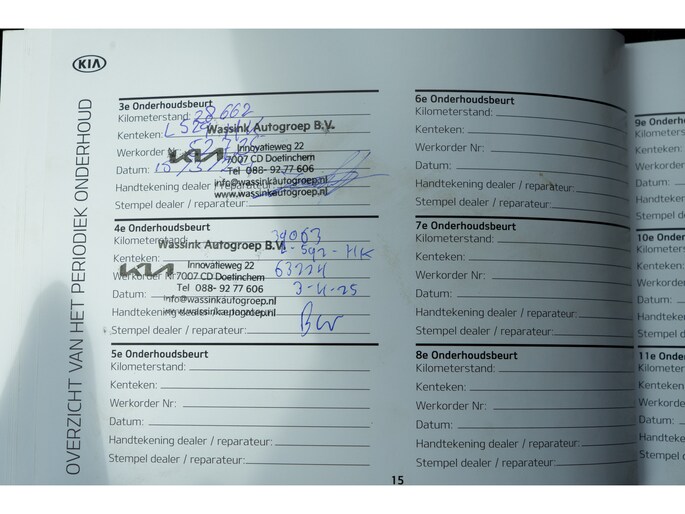 KIA
OVERZICHT VAN HET PERIODIEK ONDERHOUD
3e Onderhoudsbeurt
Kilometerstand: 28662
Kenteken: L592
Werkorder Nr:
Datum:
Handtekening dealer / reparateur:
Stempel dealer / reparateur:
Wassink Autogroep B.V.
KIA
Innovatieweg 22
7007 CD Doetinchem
Tel 088- 92 77 606
info@wassinkautogroep.nl
www.wassinkautogroep.nl
4e Onderhoudsbeurt
Kilometerstand: 39063
Kenteken: L-592-HK
Werkorder Nr: 63224
Datum: 3-4-25
Handtekening dealer / reparateur:
Stempel dealer / reparateur:
Wassink Autogroep B.V.
KIA
Innovatieweg 22
7007 CD Doetinchem
Tel 088- 92 77 606
info@wassinkautogroep.nl
www.wassinkautogroep.nl
5e Onderhoudsbeurt
Kilometerstand:
Kenteken:
Werkorder Nr:
Datum:
Handtekening dealer / reparateur:
Stempel dealer / reparateur:
6e Onderhoudsbeurt
Kilometerstand:
Kenteken:
Werkorder Nr:
Datum:
Handtekening dealer / reparateur:
Stempel dealer / reparateur:
7e Onderhoudsbeurt
Kilometerstand:
Kenteken:
Werkorder Nr:
Datum:
Handtekening dealer / reparateur:
Stempel dealer / reparateur:
8e Onderhoudsbeurt
Kilometerstand:
Kenteken:
Werkorder Nr:
Datum:
Handtekening dealer / reparateur:
Stempel dealer / reparateur:
15
9e Onderho
Kilometers
Kenteken:
Werkorder
Datum:
Handteken
Stempel de
10e Onde
Kilometer
Kenteken
Werkorde
Datum:
Handteke
Stempel
11e Ond
Kilomete
Kenteken
Werkord
Datum:
Handtek
Stempe